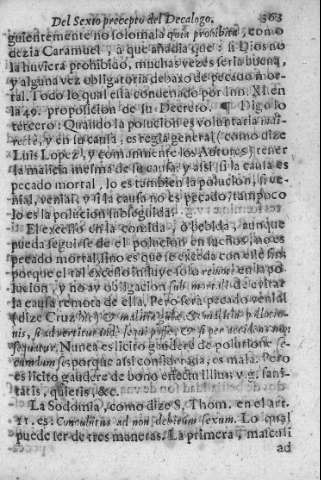 Del Sexto precepto del Decalogo. 363
guientemente no solo mala quia prohibita, como
dezia Caramuel, à que añadia que: si Dios no
la huviera prohibido, muchas vezes seria buena,
y alguna vez obligatoria debaxo de pecado mor-
tal. Todo lo qual está condenado por Inn. XI. en
la 49. proposicion de su Decreto. ¶ Digo lo
tercero: Quando la polucion es voluntaria
y en su causa, es regla general (como dize
Luis Lopez, y comunmente los Autores) tener
la malicia mesma de su causa: y assi si la causa es
pecado mortal, lo es tambien la polucion, si ve-
nial, venial, y si la causa no es pecado, tampoco
lo es la polucion subseguida.
El excesso en la comida, o bebida, aunque
pueda seguirse de el polucion en sueños, no es
pecado mortal, sino es que se exceda con esse fin;
porque el tal excesso influye solo remotè en la po-
lucion, y no ay obligacion sub mortali de evitar
la causa remota de ella. Pero será pecado venial
(dize Cruz
nis, si advertitur indè sequi posse, & si per accidens non
sequatur. Nunca es licito gaudere de polutione se-
cundum se, porque assi considerada, es mala. Pero
es licito gaudere de bono effectu illius, v. g. sani-
tatis, quietis, &c.
La Sodomia, como dize S. Thom. en el art.
11. es: Concubitus ad non debitum sexum. Lo qual
puede ser de tres maneras. La primera, masculi
ad